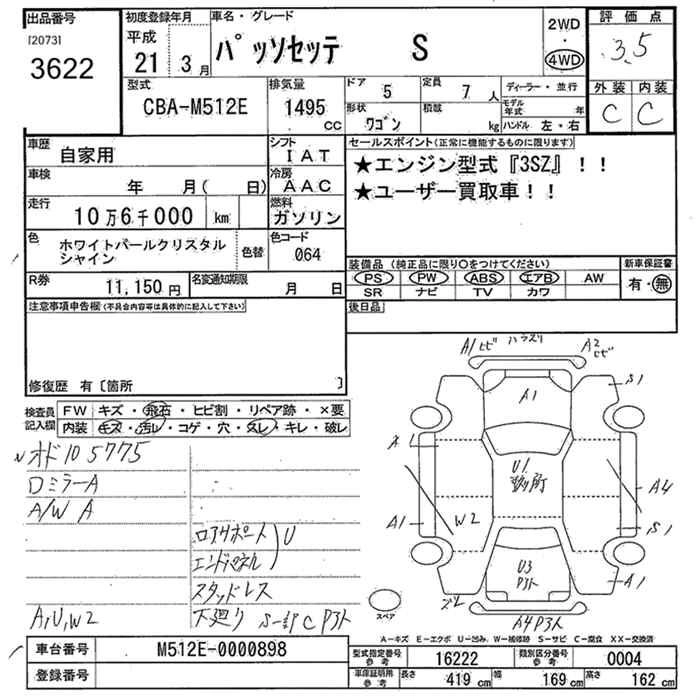 出品番号
[2073]
3622
初度登録年月
平成
21年 3月
車名・グレード
パッソセッテ S
2WD
・
4WD
評価点
3.5
外装 内装
C C
型式
CBA-M512E
排気量
1495 CC
ドア 5
定員 7 人
形状 ワゴン
積載 kg
ディーラー・並行
モデル年式 年
ハンドル 左・右
車歴 自家用
シフト IAT
車検 年 月( 日)
冷房 AAC
走行 10万6千000 km
燃料 ガソリン
色 ホワイトパールクリスタル
シャイン
色替
色コード 064
R券 11,150円
名変通知期限 月 日
セールスポイント(正常に機能するものに限ります)
★エンジン型式『3SZ』!!
★ユーザー買取車!!
装備品 (純正品に限り○をつけてください)
PS PW ABS エアB AW
SR ナビ TV カワ
新車保証書
有・無
後日品
注意事項申告欄(不具合内容等は具体的に記入して下さい)
修復歴 有〔箇所 〕
検査員
記入欄
FW キズ・飛石・ヒビ割・リペア跡・×要
内装 キズ・汚レ・コゲ・穴・スレ・キレ・破レ
オド105775
ロミラーA
A/W A
ロアサポート U
エンドパネル
スタッドレス
A,U,W2
下廻り S一部C Pタト
A1ヒビ ハラスリ A2ヒビ
A1
S1
A1
U1
数ヶ所
A4
A1
W2
S1
U3
Pタト
A1
ズレ
A4Pタト
スペア
A-キズ E-エクボ U-凹み W-補修跡 S-サビ C-腐食 XX-交換済
車台番号 M512E-0000898
登録番号
型式指定番号
参考
16222
類別区分番号
参考
0004
車庫証明用
参考
長さ 419 cm 幅 169 cm 高さ 162 cm